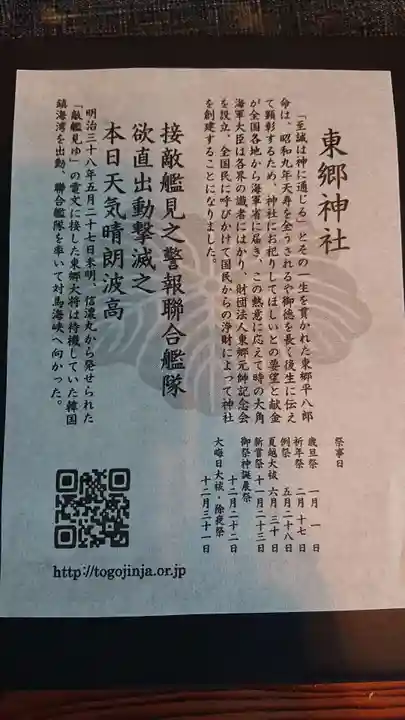 東郷神社
「至誠は神に通じる」とその一生を貫かれた東郷平八郎
命は、昭和九年天寿を全うされるや御徳を長く後生に伝え
て顕彰するため、神社にお祀りしてほしいとの要望と献金
が全国各地から海軍省に届き、この熱意に応えて時の大角
海軍大臣は各界の識者にはかり、財団法人東郷元帥記念会
を設立、全国民に呼びかけて国民からの浄財によって神社
を創建することになりました。
接敵艦見之警報聯合艦隊
欲直出動撃滅之
本日天気晴朗波高
明治三十八年五月二十七日未明、信濃丸から発せられた
「敵艦見ゆ」の電文に接した東郷大将は待機していた韓国
鎮海湾を出動、聯合艦隊を率いて対馬海峡へ向かった。
祭事日
歳旦祭 一月 一 日
祈年祭 二月 十七日
例祭 五月二十八日
夏越大祓 六月三十日
新嘗祭 十一月二十三日
御祭神誕辰祭
十二月二十二日
大晦日大祓・除夜祭
十二月三十一日
http://togojinja.or.jp